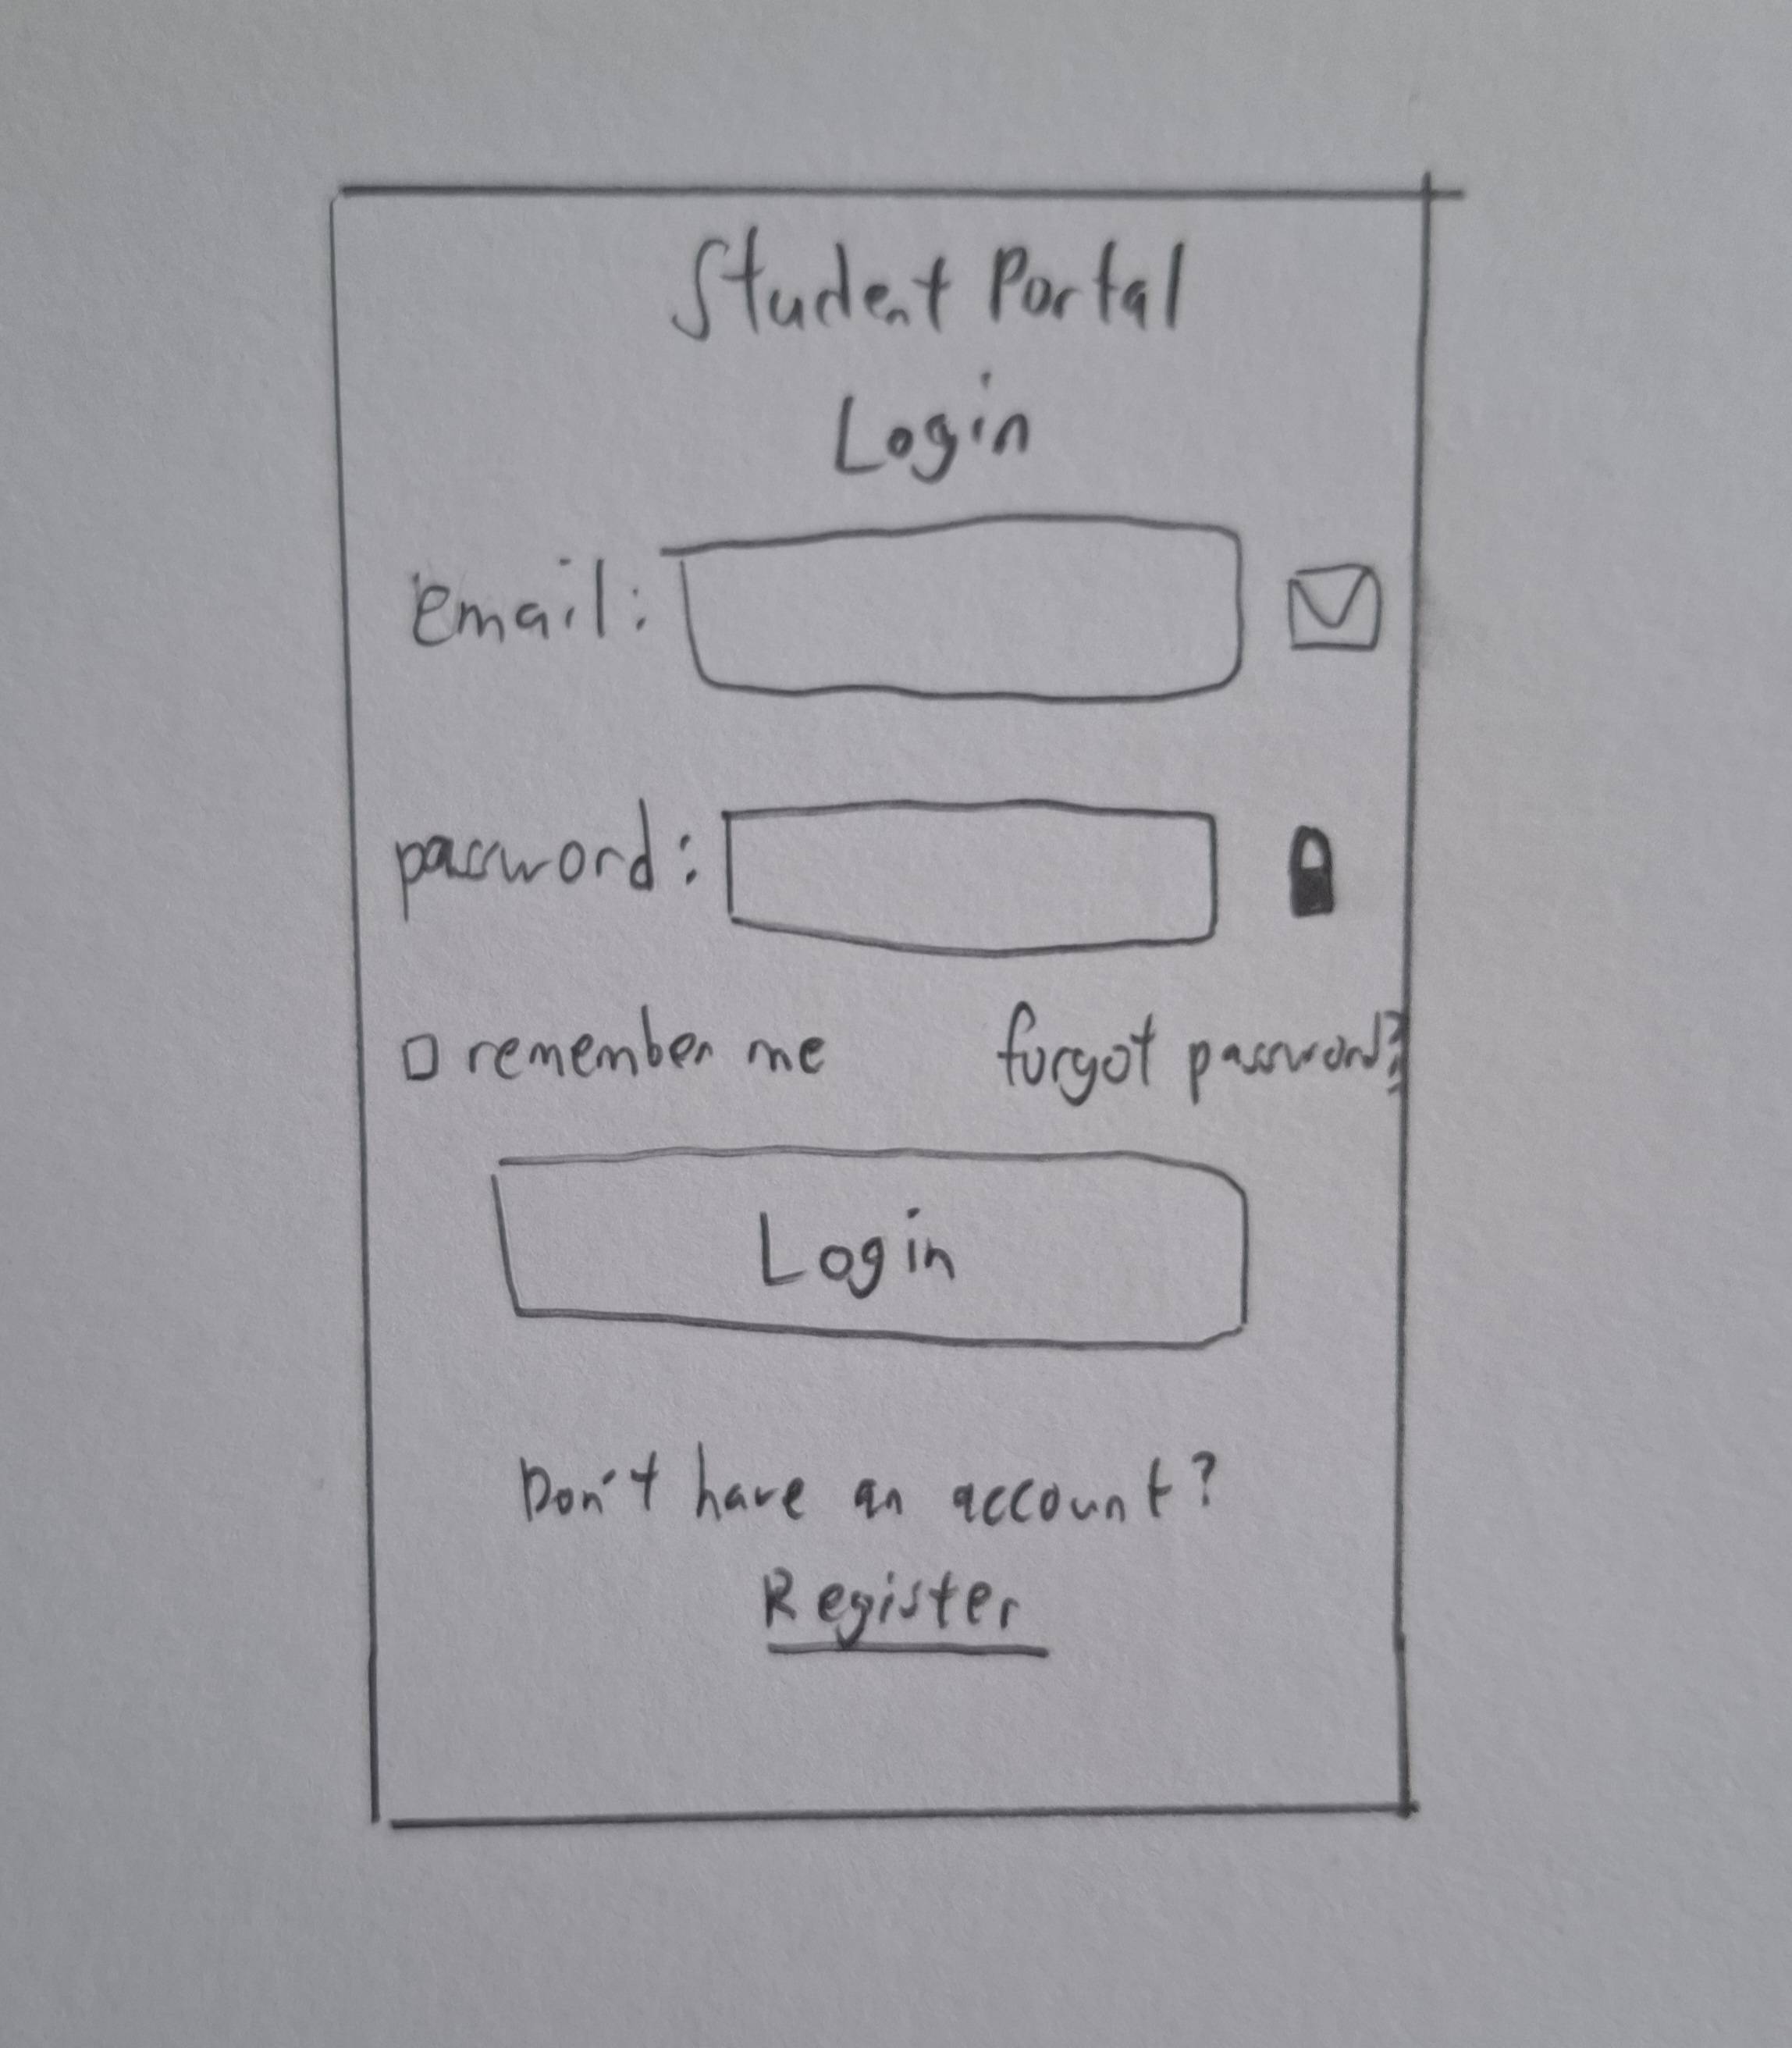 Student Portal
Login
Email:
password:
remember me forgot password?
Login
Don't have an account?
Register